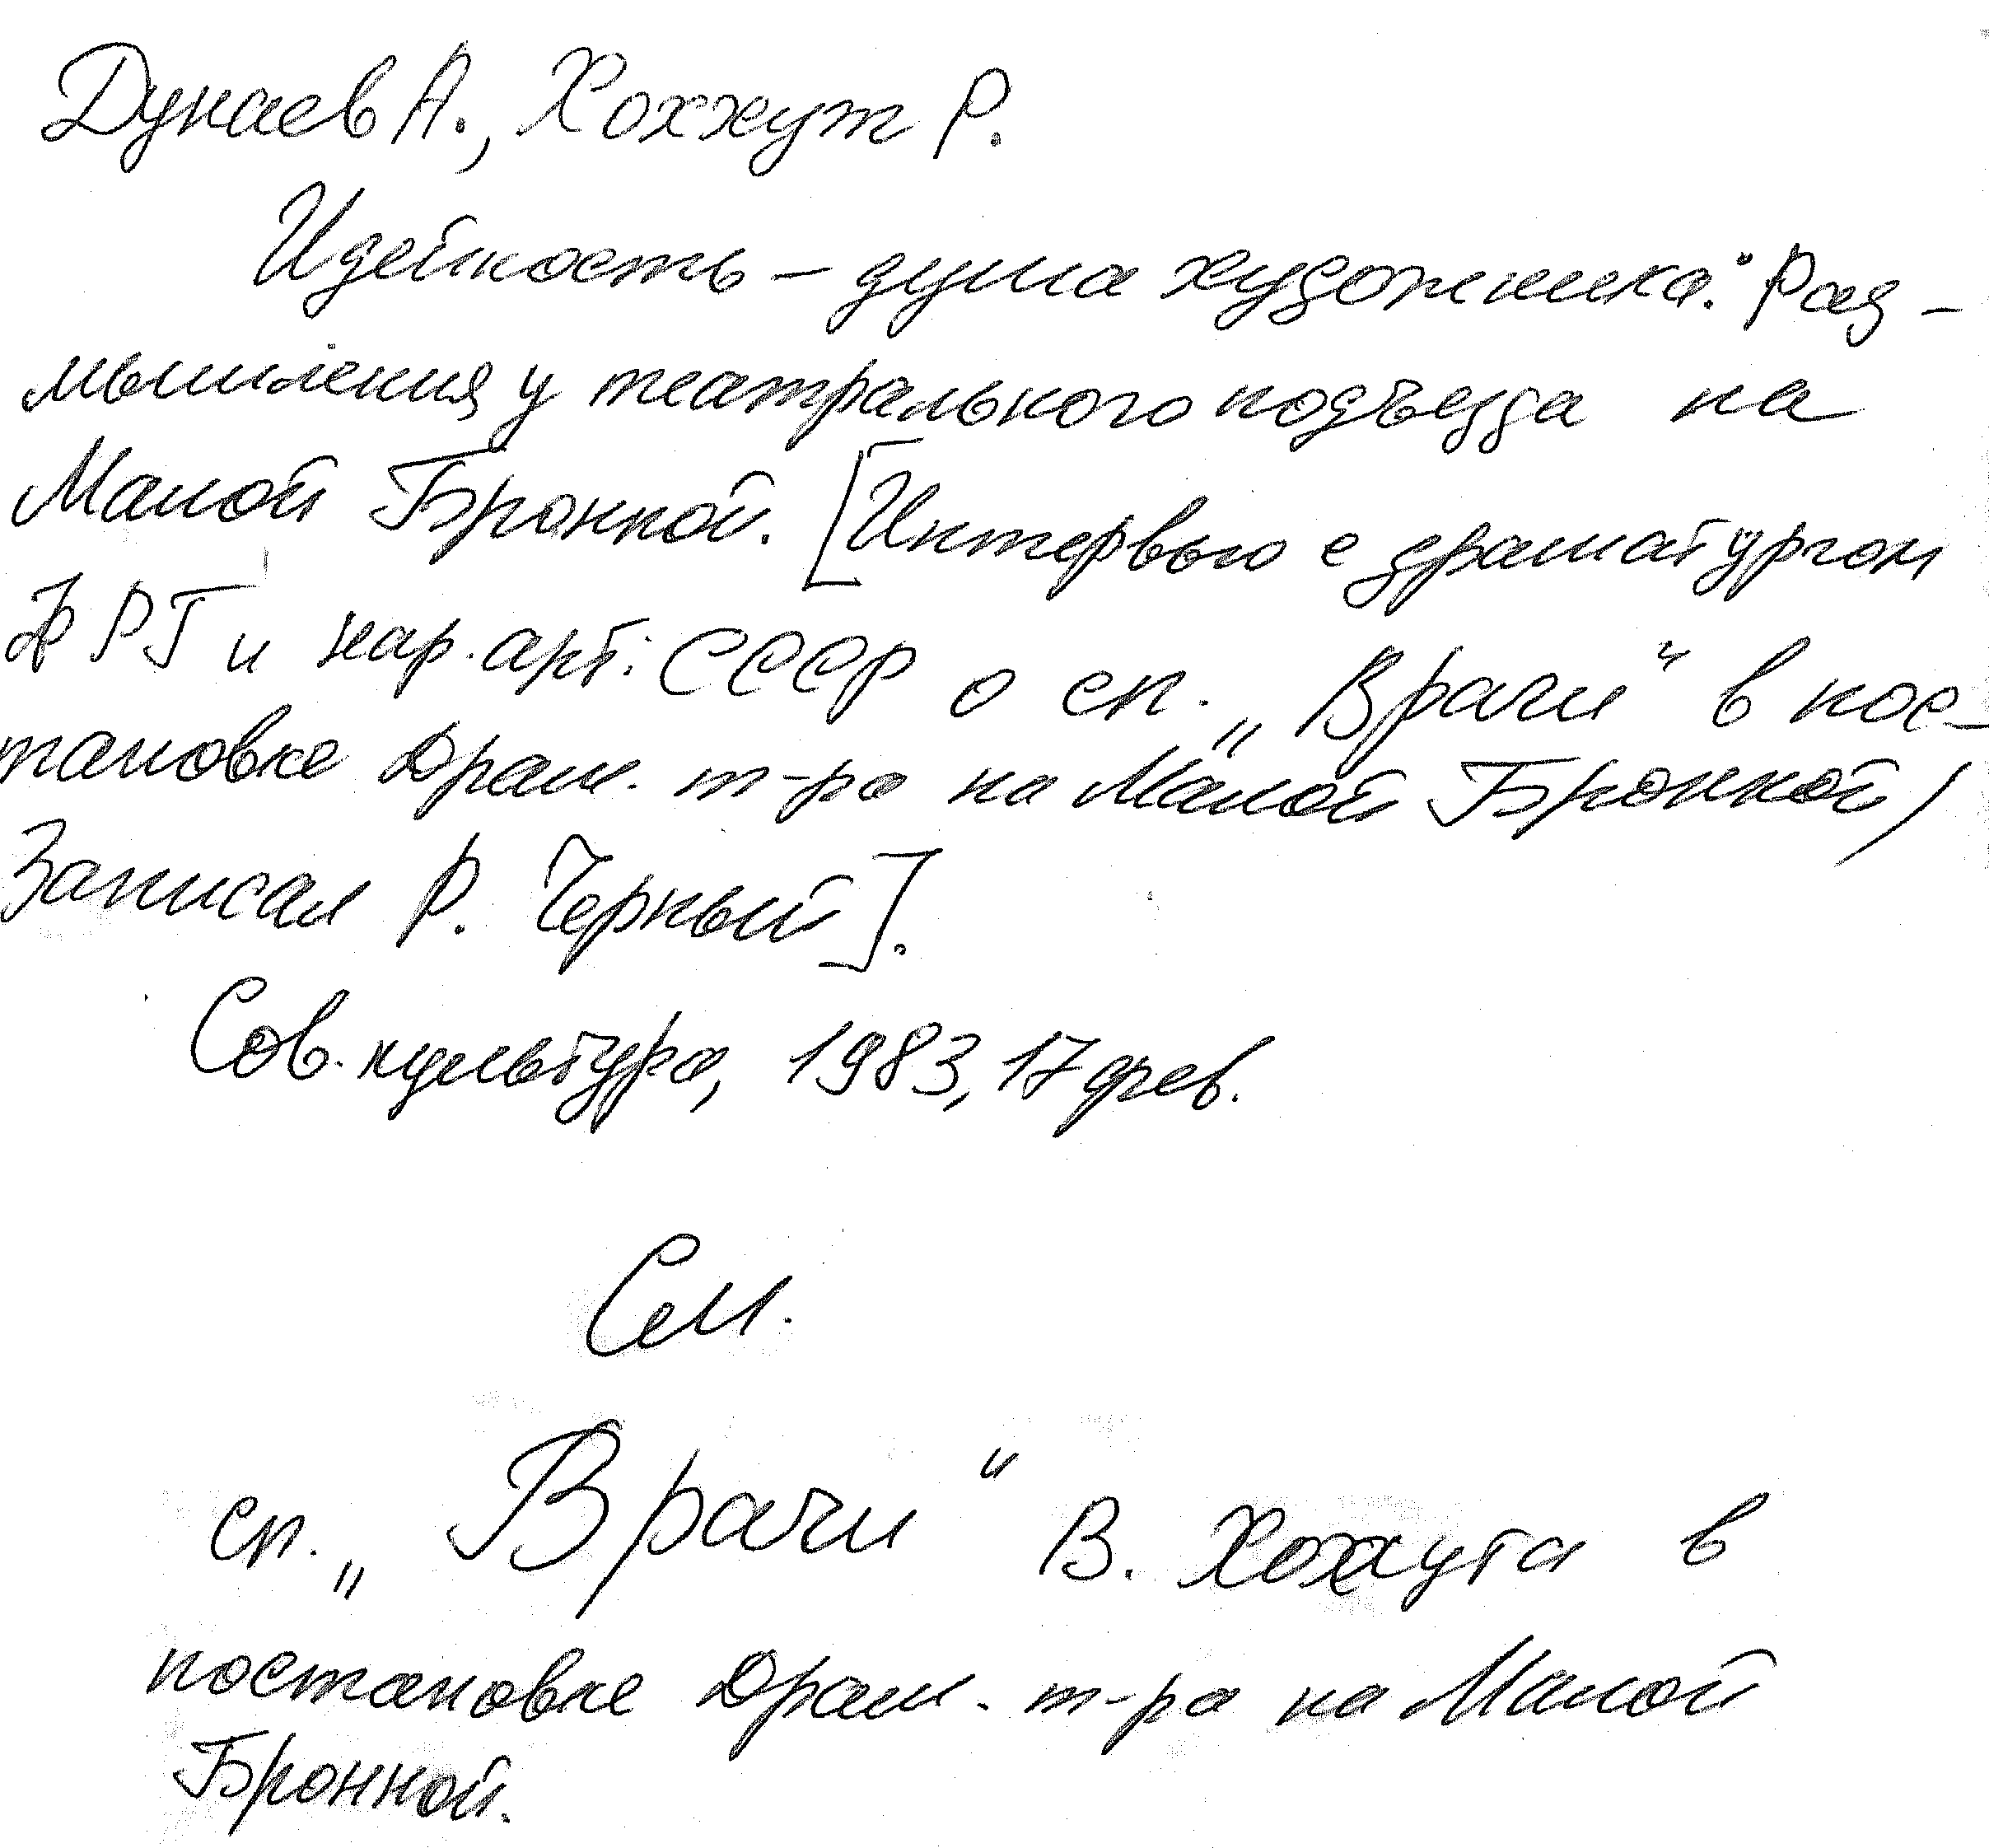 Дунаев А., Хоххут Р.
Идейность – душа художника. Раз-
мышления у театрального подъезда на
Малой Бронной. [Интервью с драматургом
ФРГ и нар. арт. СССР о сп. „Врачи“ в пос-
тановке Драм. т-ра на Малой Бронной /
Записал Р. Черный].
Сов. культура, 1983, 17 фев.
См.
сп. „Врачи“ В. Хоххута в
постановке Драм. т-ра на Малой
Бронной.